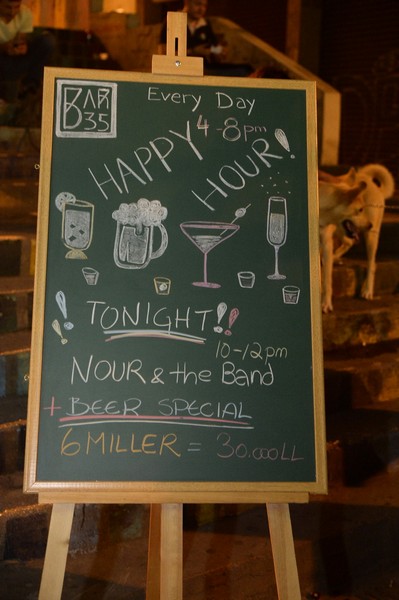 BAR 35
Every Day
4-8pm
HAPPY HOUR!
TONIGHT!!
10-12pm
NOUR & the Band
+ BEER SPECIAL
6 MILLER = 30.000LL